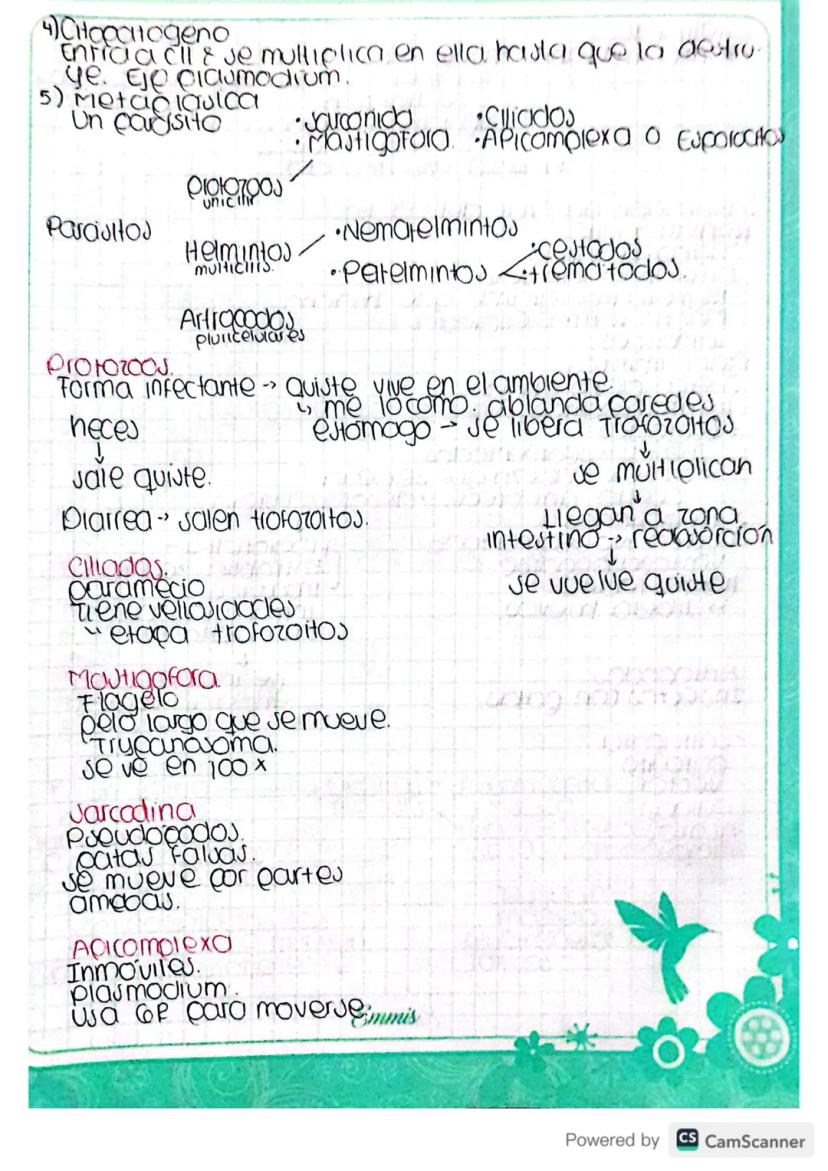 4) Citopatogeno
Entra a cll & se multiplica en ella hasta que la destru-
ye. Eje plasmodium.
5) Metaplasica
Un parásito
• Sarconida
• Ciliados
• Mastigofora.
• Apicomplexa o Esporocitos
Protozoos
unicllr
Parasitos
Helmintos
multicllrs.
• Nematelmintos
• Patelmintos
• cestados
• trematodos.
Artropodos
pluricelulares
Protozoos.
Forma infectante → quiste vive en el ambiente.
↳ me lo como. ablanda paredes
heces
estomago → se libera Trofozoitos
↓
↓
sale quiste.
se multiplican
↓
Diarrea → salen trofozoitos.
Llegan a zona
intestino → redasorcion
↓
Ciliados.
se vuelve quiste
paramecio
Tiene vellosidades
↳ etapa trofozoitos
Mastigofara.
Flagelo
pelo largo que se mueve.
Trypanosoma.
se ve en 100x
Sarcodina
Pseudopodos.
patas falsas.
se mueve por partes
amebas.
Apicomplexa
Inmóviles.
plasmodium.
usa GR para moverse.
Emmis
Powered by CS CamScanner